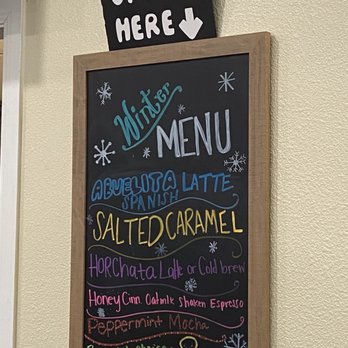 HERE
Winter
MENU
ABUELITA LATTE
SPANISH
SALTED CARAMEL
HORCHata Latte or Cold brew
Honey Cinn Oatmilk Shaken Espresso
Peppermint Mocha